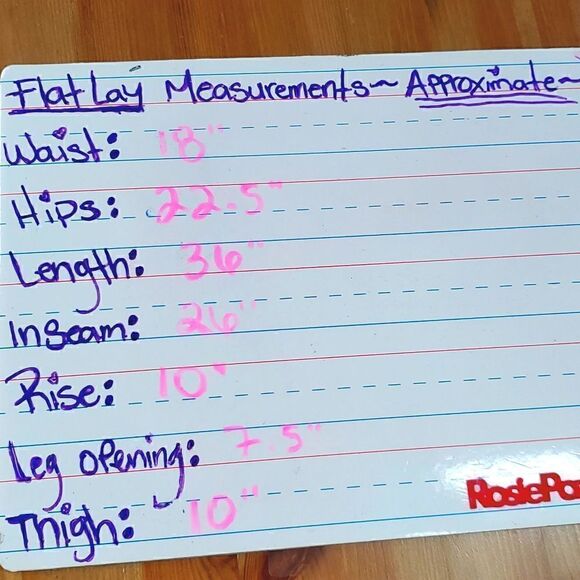 Flat Lay Measurements~ Approximate~
Waist: 18"
Hips: 22.5"
Length: 36"
Inseam: 26"
Rise: 10"
Leg opening: 7.5"
Thigh: 10"